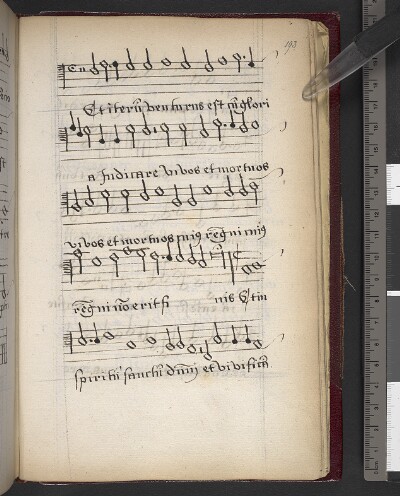 193
Et iterū venturus est cū glori
a Judicare vivos et mortuos
vivos et mortuos cuius regni cuius
regni nō erit fi nis Et in
spiritū sanctū dn̄m et vivificā